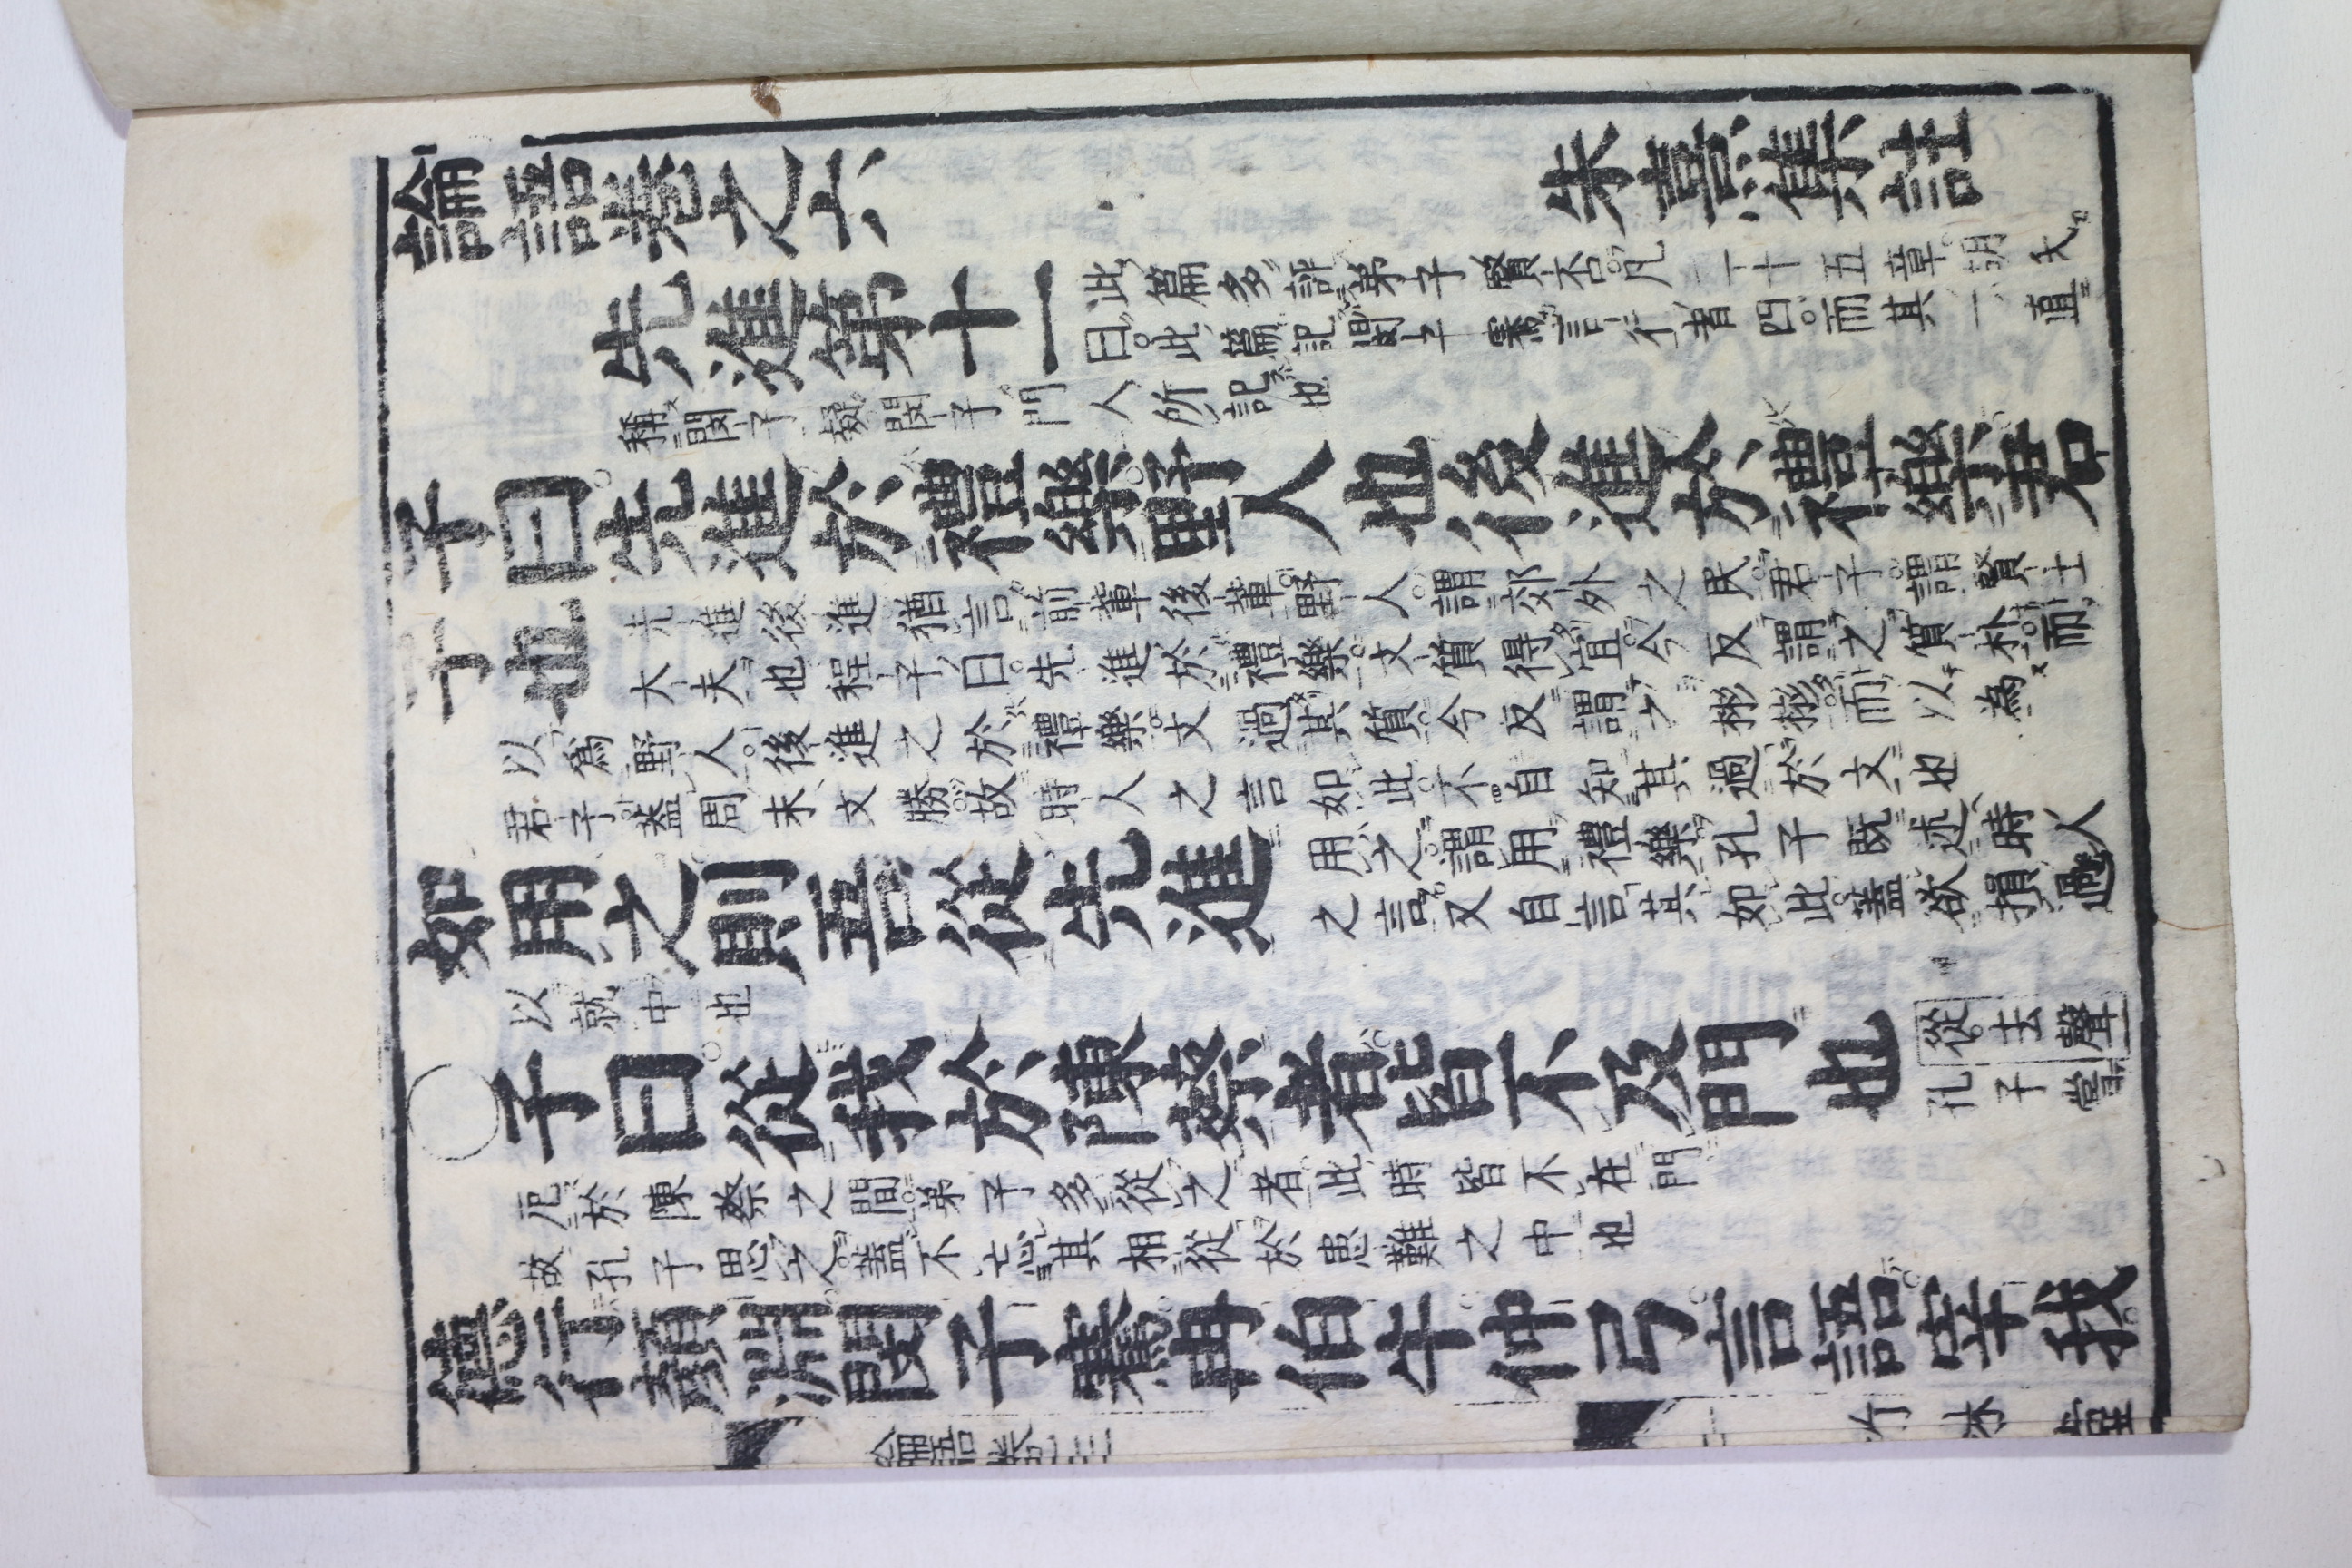 論語卷之六
朱熹集註
先進第十一
此篇多評弟子賢否凡二十五章胡氏
曰此篇記閔子騫言行者四而其一直
稱閔子疑閔子門人所記也
子曰先進於禮樂野人也後進於禮樂君
子也
先進後進猶言前輩後輩野人謂郊外之民君子謂賢士
大夫也程子曰先進於禮樂文質得宜今反謂之質朴而
以爲野人後進之於禮樂文過其質今反謂之彬彬而以為
君子蓋周末文勝故時人之言如此不自知其過於文也
如用之則吾從先進
用之謂用禮樂孔子既述時人
之言又自言其如此蓋欲損過
以就中也
○子曰從我於陳蔡者皆不及門也
從去聲
孔子嘗
厄於陳蔡之間弟子多從之者此時皆不在門
故孔子思之蓋不忘其相從於患難之中也
德行顏淵閔子騫冉伯牛仲弓言語宰我
論語卷三
竹林堂